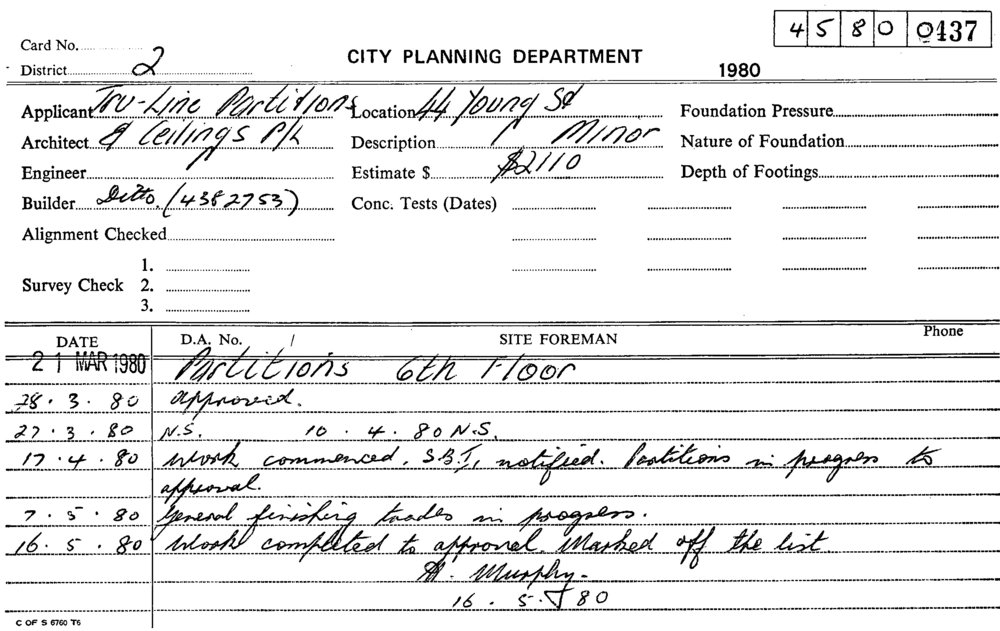 45800437
Card No.
CITY PLANNING DEPARTMENT
District 2
1980
Applicant Tru-Line Partitions Location 44 Young St Foundation Pressure
Architect & Ceilings P/L Description Minor Nature of Foundation
Engineer Estimate $ $2110 Depth of Footings
Builder Ditto. (4382753) Conc. Tests (Dates)
Alignment Checked
1.
Survey Check 2.
3.
DATE D.A. No. / SITE FOREMAN Phone
21 MAR 1980 Partitions 6th Floor
28.3.80 approved.
27.3.80 N.S. 10.4.80 N.S.
17.4.80 Work commenced. S.B.I. notified. Partitions in progress to
approval.
7.5.80 General finishing trades in progress.
16.5.80 Work completed to approval. Marked off the list.
Murphy.
16.5.80
C OF S 6760 T6